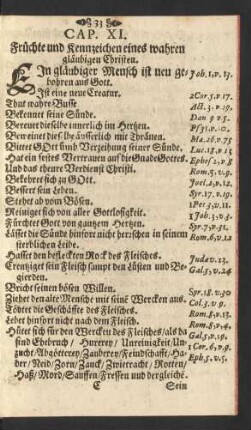 33
CAP. XI.
Früchte und Kennzeichen eines wahren
gläubigen Christen.
Ein gläubiger Mensch ist neu ge- Joh. 1, v. 13.
bohren aus Gott.
Ist eine neue Creatur. 2 Cor. 5. v. 17.
Thut wahre Busse Act. 3. v. 19.
Bekennet seine Sünde. Dan 9 v 5.
Bereuet dieselbe innerlich im Hertzen.
Beweinet dieselbe äusserlich mit Thränen.
Bittet GOtt umb Verzeihung seiner Sünde. Luc. 18. v. 13
Hat ein festes Vertrauen auf die Gnade Gottes. Ephes. 2. v. 8
Und das theure Verdienst Christi. Rom. 5. v. 9.
Bekehret sich zu GOtt. Joel. 2, v. 12.
Bessert sein Leben. Syr. 17. v. 19.
Stehet ab vom Bösen. 1 Pet. 3, v. 11.
Reiniget sich von aller Gottlosigkeit. 1 Joh. 3. v 3.
Fürchtet Gott von gantzem Hertzen. Syr. 7. v. 31.
Lässet die Sünde hinfort nicht herrschen in seinem Rom. 6. v. 12
sterblichen Leibe.
Hasset den befleckten Rock des Fleisches. Judæ v. 23.
Creutziget sein Fleisch sampt den Lüsten und Be- Gal. 5. v. 24
gierden.
Bricht seinen bösen Willen. Syr. 18. v. 30
Ziehet den alte Mensche mit seine Wercken aus. Col. 3. v. 9.
Tödtet die Geschäffte des Fleisches. Rom. 8. v. 13.
Lebet hinfort nicht nach dem Fleisch. Rom. 8, v. 4.
Hütet sich für den Wercken des Fleisches/ als da Gal. 5. v. 19.
sind Ehebruch/ Hurerey/ Unreinigkeit/ Un- 1 Cor. 6, v. 9.
zucht/ Abgötterey/ Zauberey/ Feindschafft/ Ha- Eph. 5. v. 5.
der/ Neid/ Zorn/ Zanck/ Zwietracht/ Rotten/
Haß/ Mord/ Sauffen Fressen und dergleiche.
C Sein